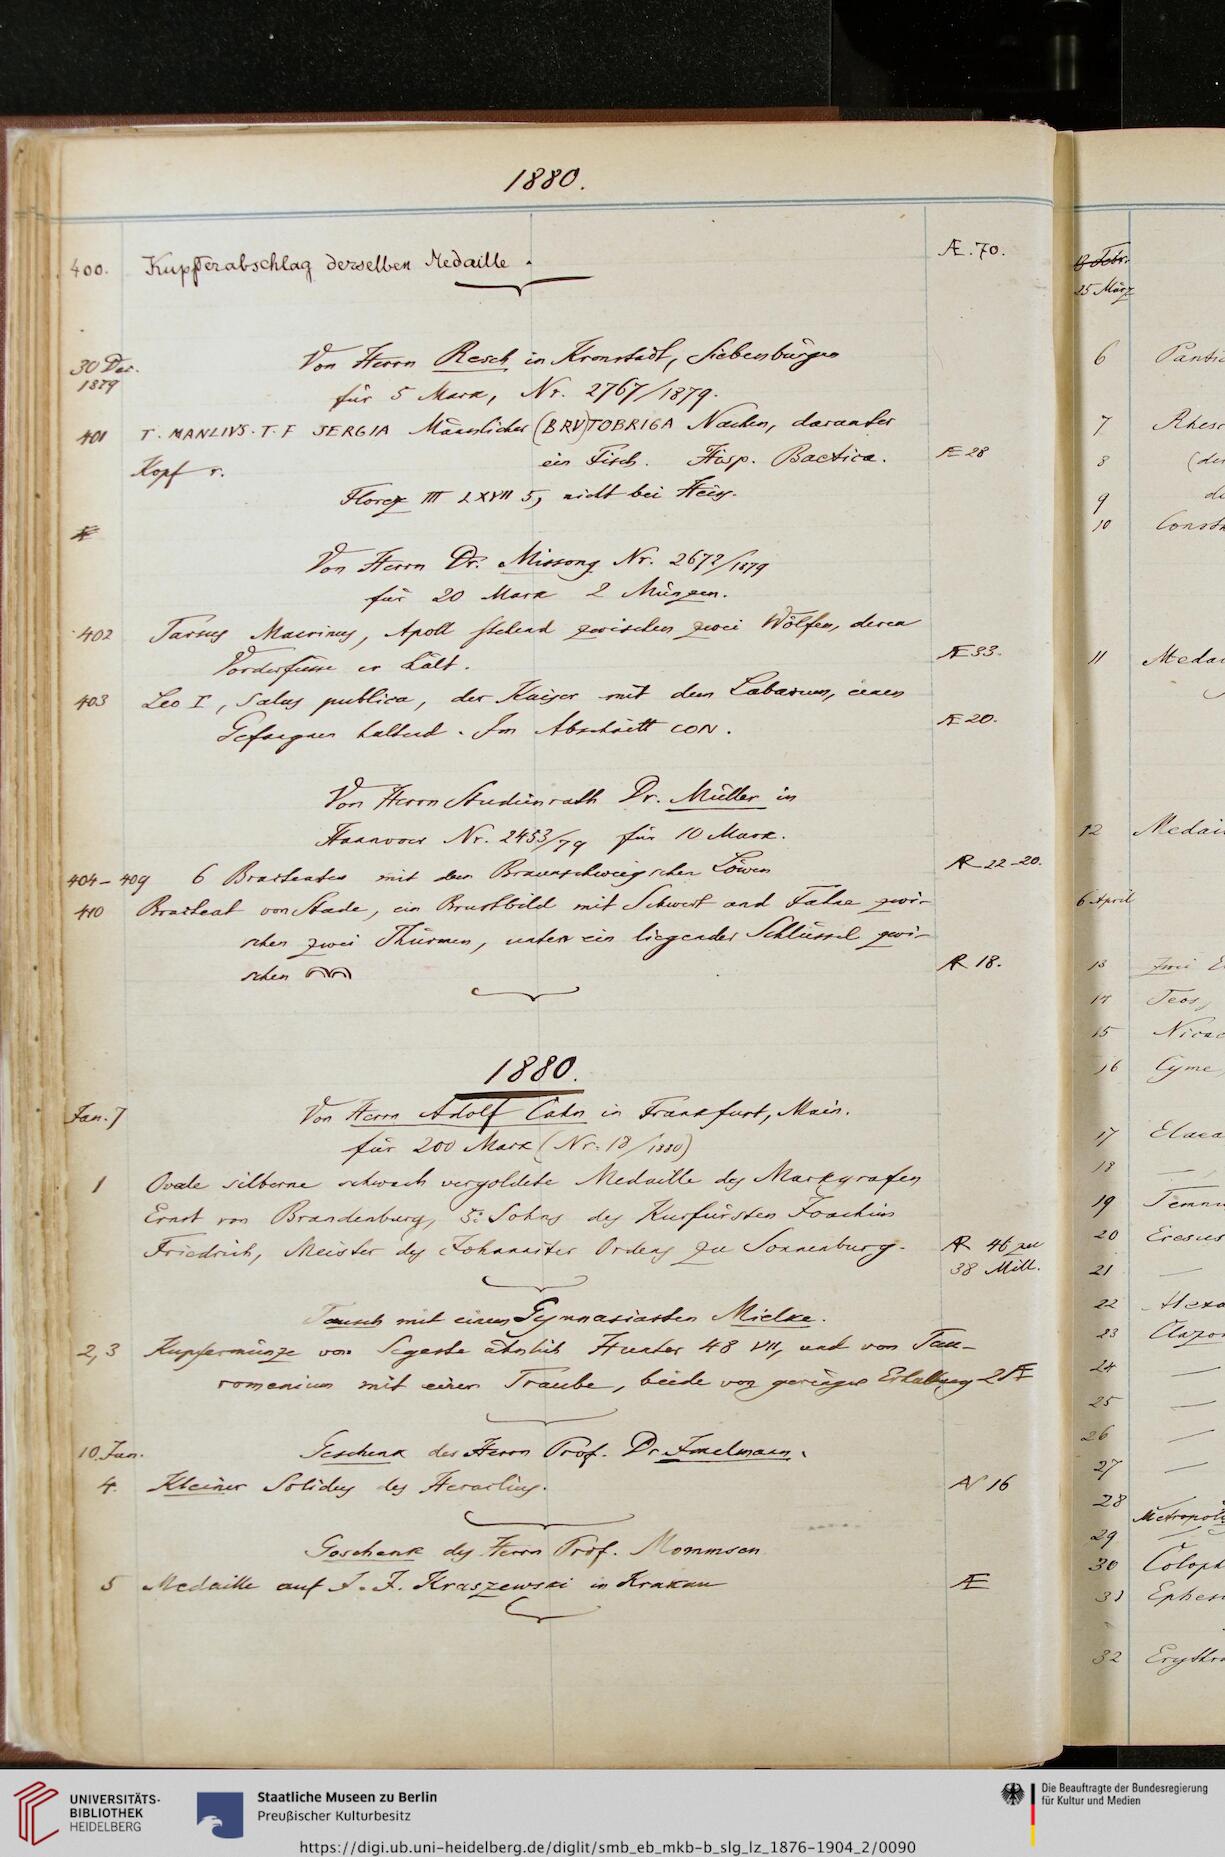 1880.
400. Kupferabschlag derselben Medaille. Æ. 70.
30 Dec. 1879
Von Herrn Resch in Kronstadt, Siebenbürgen
für 5 Mark, Nr. 2767/1879.
401 T. MANLIVS. T. F SERGIA Männlicher Kopf r. (BRV)TOBRIGA Nachen, darunter
ein Fisch. Hisp. Baetica. Æ 28
Florez III LXVII 5, nicht bei Heiss.
Von Herrn Dr. Missong Nr. 2672/1879
für 20 Mark 2 Münzen.
402 Tarsus Macrinus, Apoll stehend zwischen zwei Wölfen, deren
Vorderfüsse er hält. Æ 33.
403 Leo I, Salus publica, der Kaiser mit dem Labarum, einen
Gefangnen haltend. Im Abschnitt CON. Æ 20.
Von Herrn Studienrath Dr. Müller in
Hannover Nr. 2453/79 für 10 Mark.
404-409 6 Bracteaten mit dem Braunschweigschen Löwen AR 22-20.
410 Bracteat von Stade, ein Brustbild mit Schwert und Fahne zwi-
schen zwei Thürmen, unten ein liegender Schlüssel zwi-
schen AR 18.
1880.
Jan. 7 Von Herrn Adolf Cahn in Frankfurt, Main.
für 200 Mark (Nr. 18/1880)
1 Ovale silberne schwach vergoldete Medaille des Markgrafen
Ernst von Brandenburg, 5. Sohns des Kurfürsten Joachim
Friedrich, Meister des Johanniter Ordens zu Sonnenburg. AR 46 zu
38 Mill.
Tausch mit einem Gymnasiasten Mielke.
2, 3 Kupfermünze von Segesta ähnlich Hunter 48 VII, und von Tau-
romenium mit einer Traube, beide von geringer Erhaltung 2 Æ
10. Jan. Geschenk des Herrn Prof. Dr. Imelmann.
4. Kleiner Solidus des Heraclius. AV 16
Geschenk des Herrn Prof. Mommsen
5 Medaille auf J. J. Kraszewski in Krakau Æ
25 März
6
7
8
9
10
11
12
6 April
13
14 Teos,
15
16 Cyme
17
18
19
20 Eresus
21
22
23
24
25
26
27
28
29
30
31
32
UNIVERSITÄTS-
BIBLIOTHEK
HEIDELBERG
Staatliche Museen zu Berlin
Preußischer Kulturbesitz
Die Beauftragte der Bundesregierung
für Kultur und Medien
https://digi.ub.uni-heidelberg.de/diglit/smb_eb_mkb-b_slg_lz_1876-1904_2/0090